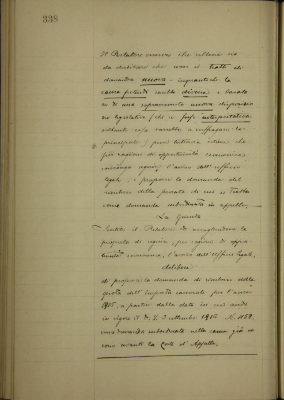 338
Il Relatore osserva che sebbene sia
da dubitare che non si tratti di
domanda nuova - inquantochè la
causa petendi sarebbe diversa e basata
su di una sopravvenuta nuova disposizione
legislativa (che se fosse interpretativa
sarebbe a suffragare la
principale) pure tuttavia ritiene che
per ragioni di opportunità economica
convenga seguire l'avviso dell'ufficio
legale, e proporre la domanda del
rimborso della quota di cui si tratta
come domanda subordinata in appello.
La Giunta
Sentito il Relatore ed accogliendone la
proposta di seguire, per ragioni di opportunità
economica, l'avviso dell'Ufficio legale,
delibera
di proporre la domanda di rimborso della
quota dell'imposta camerale per l'anno
a partire dalla data in cui andò
in vigore il D. L. 8 settembre 1916 N.
come domanda subordinata nella causa già in
corso avanti la Corte d'Appello.